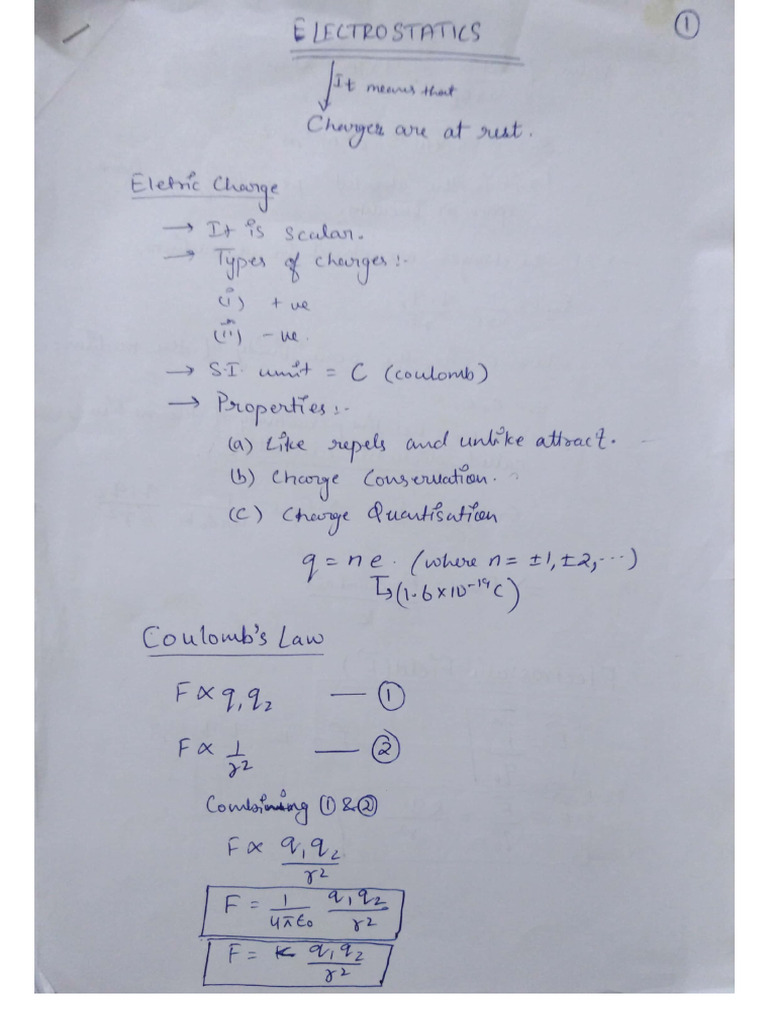 ELECTROSTATICS
①
It means that
Charges are at rest.
Eletric Charge
→ It is scalar.
→ Types of charges :-
(i) +ve
(ii) -ve.
→ S.I. unit = C (coulomb)
→ Properties :-
(a) Like repels and unlike attract.
(b) Charge Conservation.
(c) Charge Quantisation
q = ne. (where n = ±1, ±2, ...)
↳ (1.6×10⁻¹⁹C)
Coulomb's Law
F ∝ q₁q₂ — ①
F ∝ 1/r² — ②
Combining ① & ②
F ∝ q₁q₂/r²
F = 1/4πε₀ q₁q₂/r²
F = K q₁q₂/r²